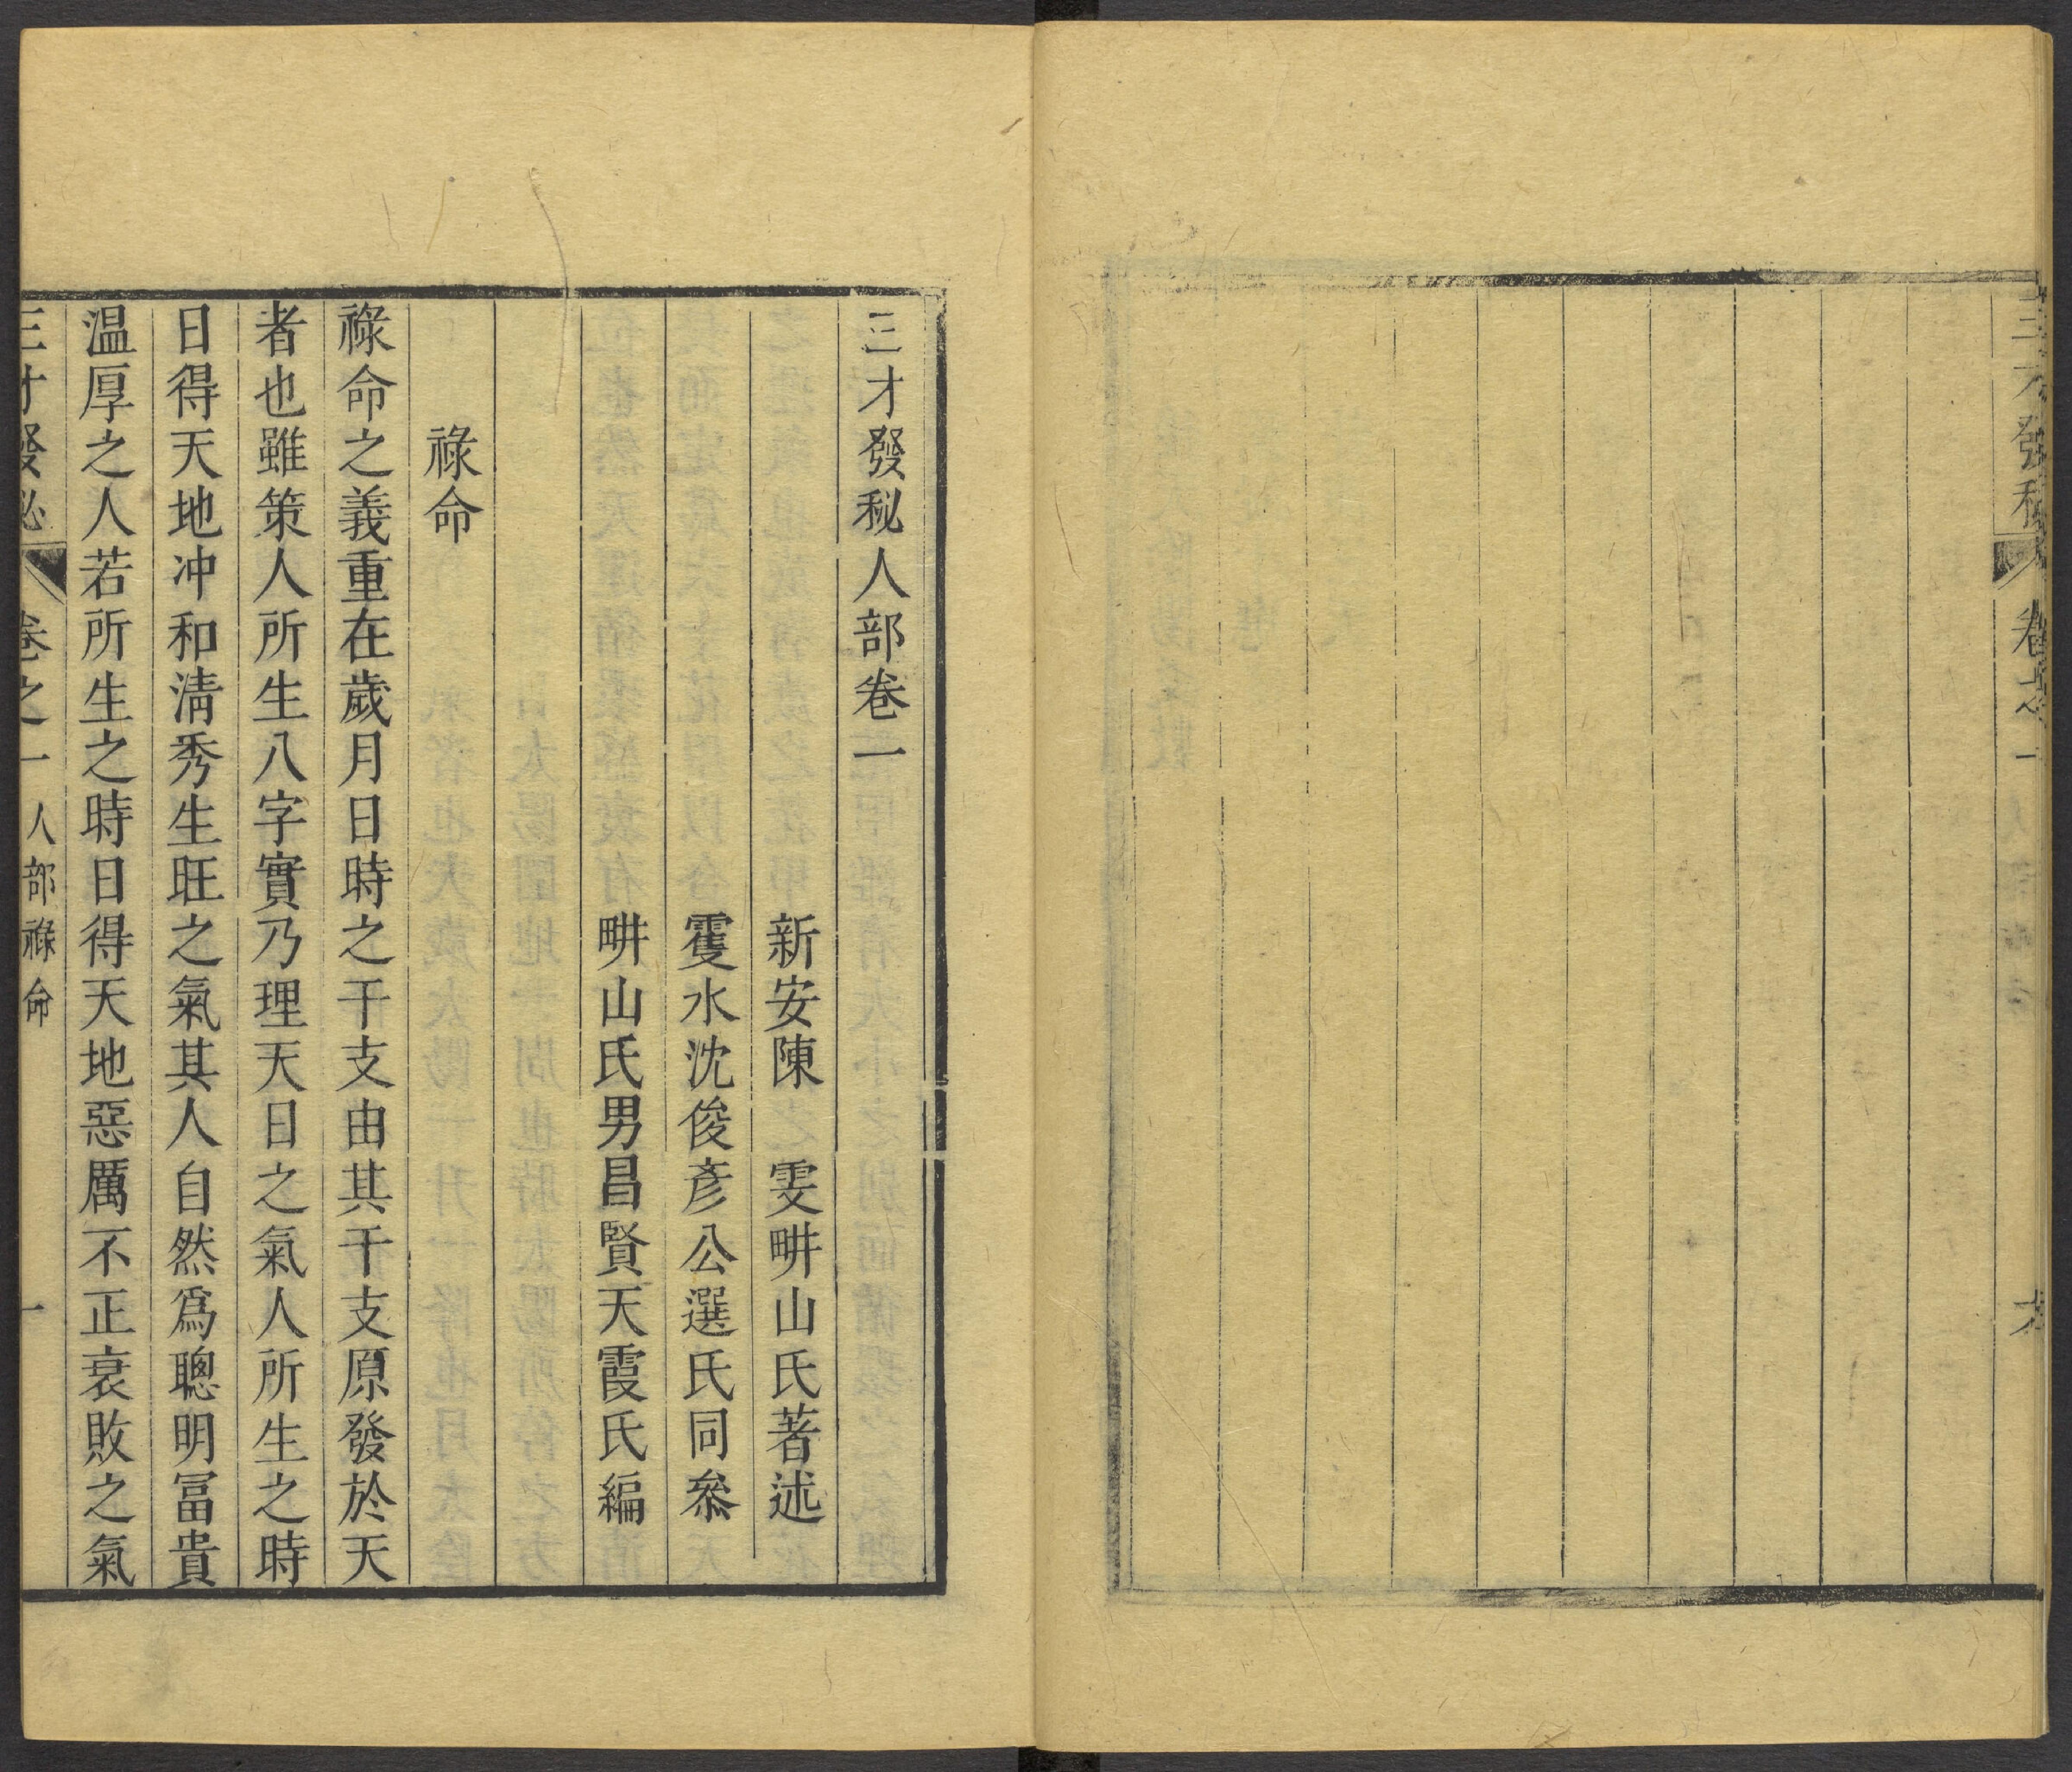 三才發秘
卷之一
三才發秘人部卷一
新安陳　雯畊山氏著述
霅水沈俊彥公選氏同叅
畊山氏男昌賢天霞氏編
祿命
祿命之義重在歲月日時之干支由其干支原發於天
者也雖策人所生八字實乃理天日之氣人所生之時
日得天地冲和淸秀生旺之氣其人自然爲聰明冨貴
温厚之人若所生之時日得天地惡厲不正衰敗之氣
三才發秘　卷之一　人部祿命　一